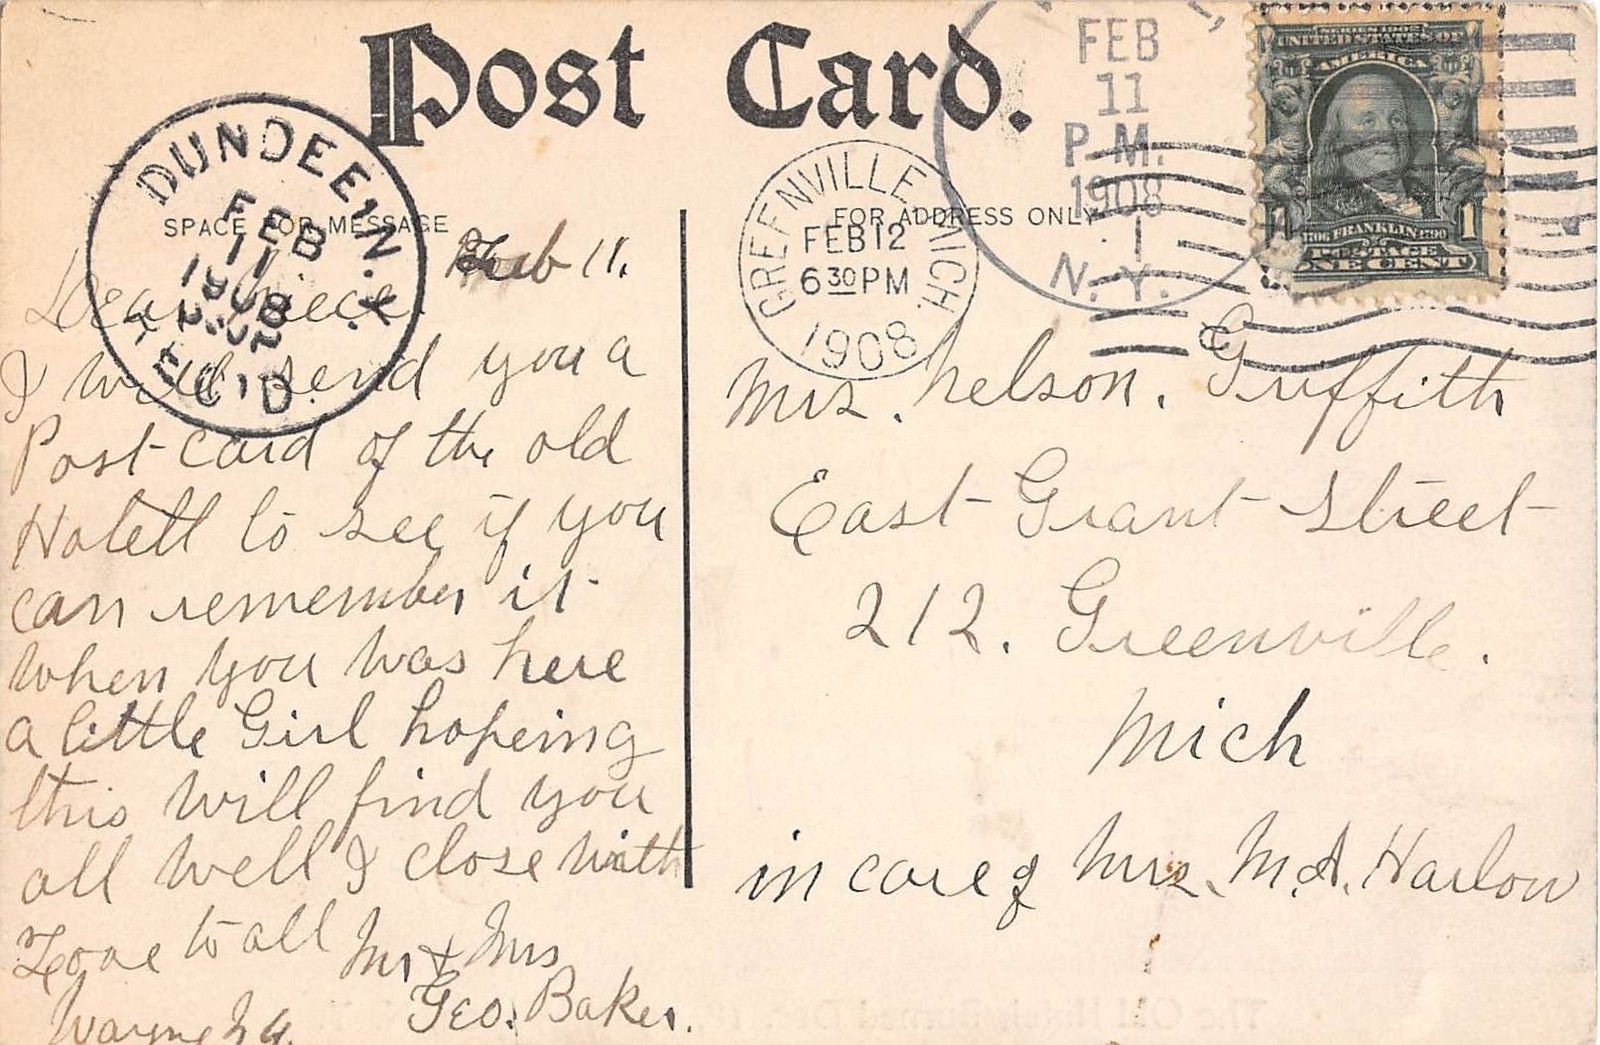 Post Card.
SPACE FOR MESSAGE
FOR ADDRESS ONLY
DUNDEE, N.Y.
FEB
11
1908
REC'D.
GREENVILLE, MICH.
FEB 12
6 30 PM
1908
FEB
11
P.M.
1908
N.Y.
SERIES 1902
UNITED STATES OF
AMERICA
1 1
1706 FRANKLIN 1790
POSTAGE
ONE CENT
Feb 11.
Dear Niece.
I will send you a
Post-card of the old
Hotell to see if you
can remember it
when you was here
a little Girl hopeing
this will find you
all well I close with
Love to all Mr & Mrs
Geo. Baker.
Wayne
Mrs. Nelson. Griffith
East Grant Street
212. Greenville.
Mich
in care of Mrs. M.A. Harlow